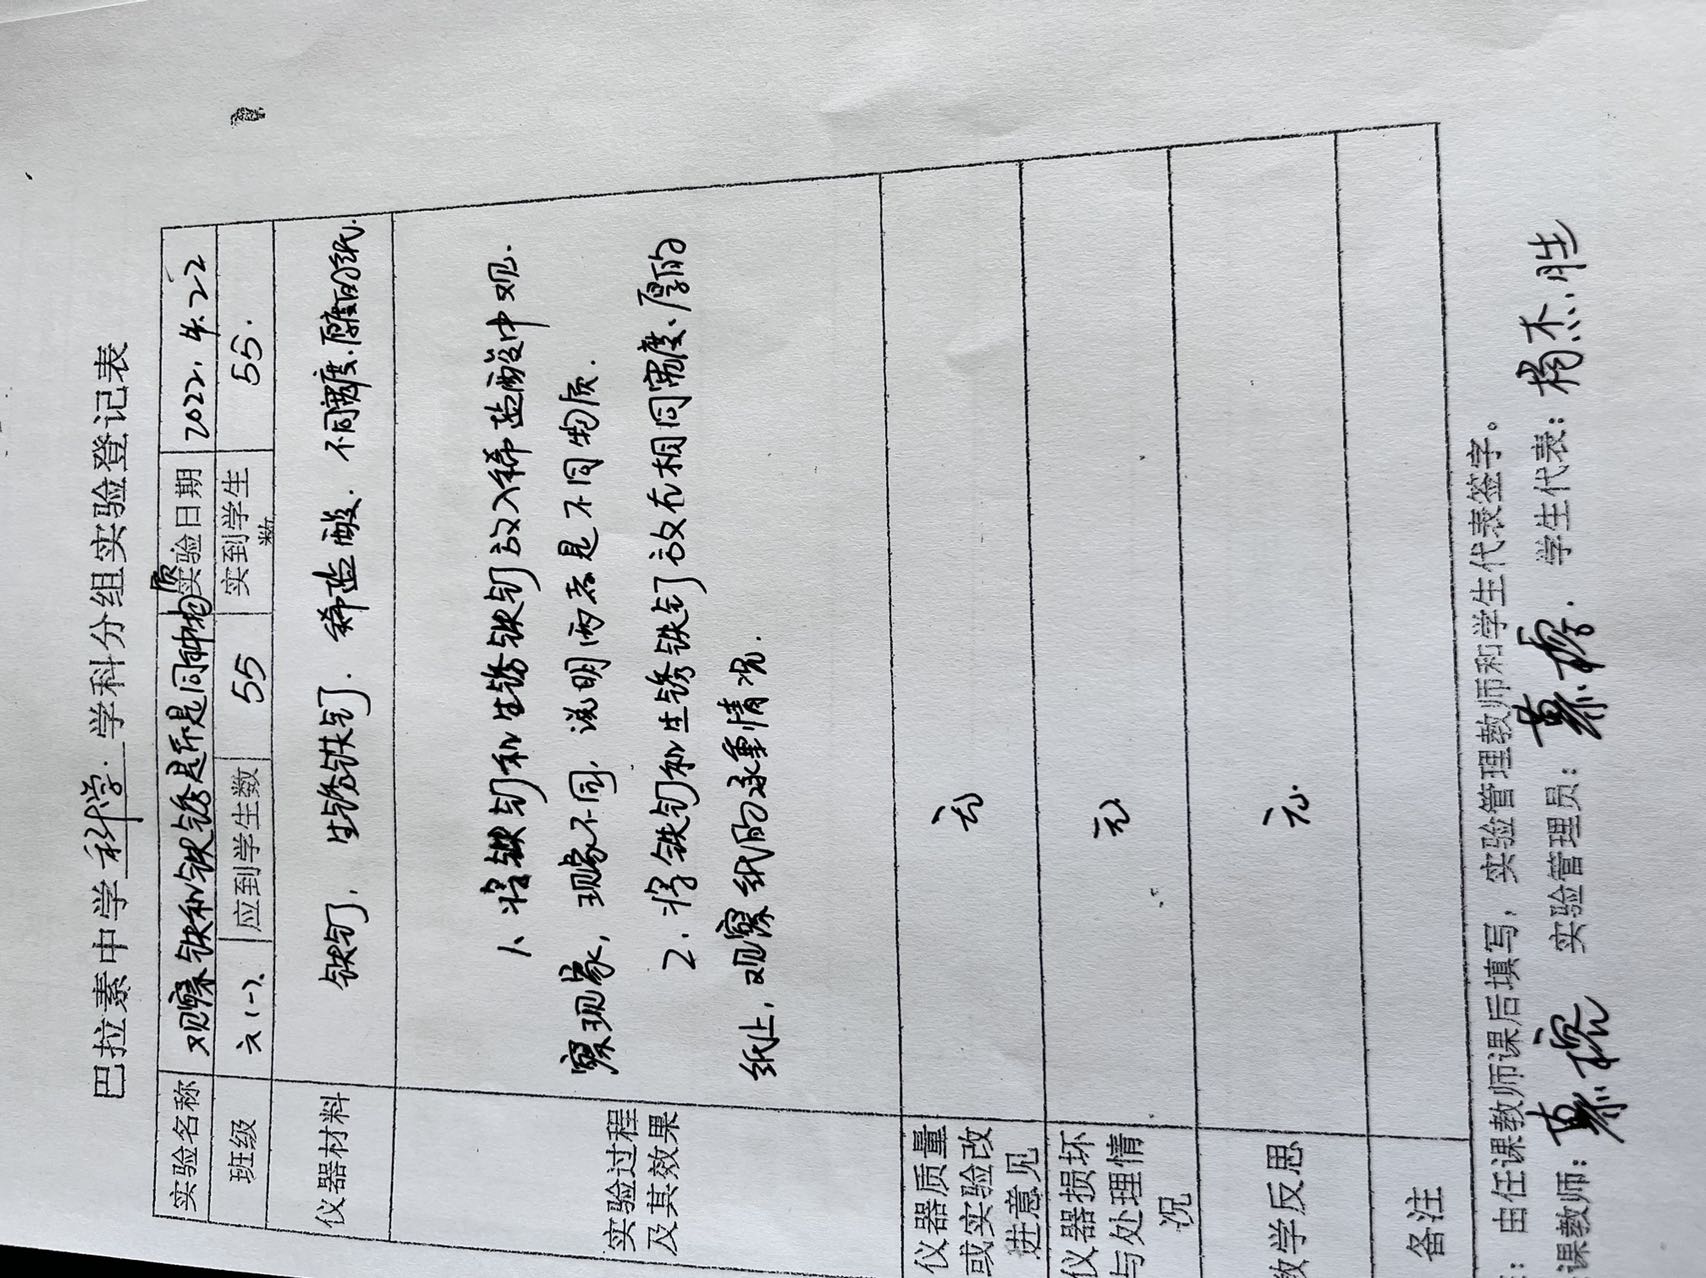 巴拉素中学 科学 学科分组实验登记表
实验名称 观察铁和铁锈是不是同种物质 实验日期 2022.4.22
班级 六(一) 应到学生数 55 实到学生数 55.
仪器材料 铁钉, 生锈铁钉. 稀盐酸. 不同宽度.厚度的纸.
实验过程及其效果
1、将铁钉和生锈铁钉放入稀盐酸中观
察现象, 现象不同, 说明两者是不同物质.
2.将铁钉和生锈铁钉放在相同宽度、厚的
纸上, 观察纸的承重情况.
仪器质量或实验改进意见 无
仪器损坏与处理情况 无
教学反思 无
备注
: 由任课教师课后填写, 实验管理教师和学生代表签字。
课教师: 实验管理员: 学生代表: 杨杰胜